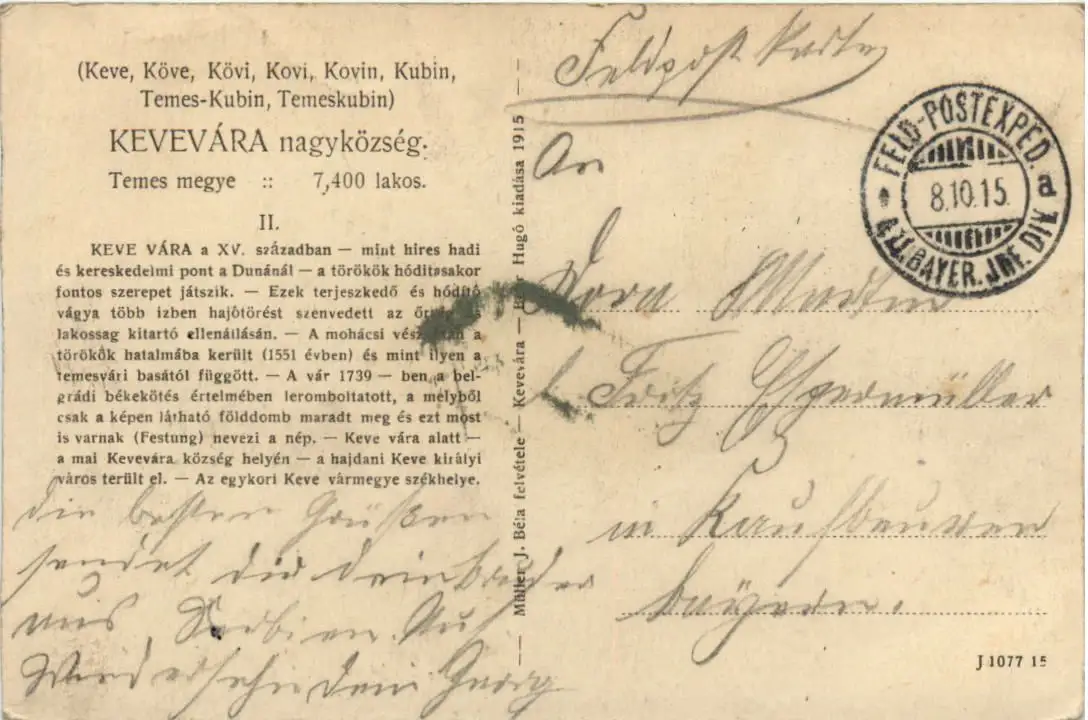 (Keve, Köve, Kövi, Kovi, Kovin, Kubin,
Temes-Kubin, Temeskubin)
KEVEVÁRA nagyközség.
Temes megye :: 7,400 lakos.
II.
KEVE VÁRA a XV. században — mint hires hadi
és kereskedelmi pont a Dunánál — a törökök hóditásakor
fontos szerepet játszik. — Ezek terjeszkedő és hóditó
vágya több izben hajótörést szenvedett az őrség s
lakossag kitartó ellenállásán. — A mohácsi vész után a
törökök hatalmába került (1551 évben) és mint ilyen a
temesvári basától függött. — A vár 1739 — ben a bel-
grádi békekötés értelmében leromboltatott, a melyből
csak a képen látható földdomb maradt meg és ezt most
is varnak (Festung) nevezi a nép. — Keve vára alatt —
a mai Kevevára község helyén — a hajdani Keve királyi
város terült el. — Az egykori Keve vármegye székhelye.
die besten Grüßen
sendet dir dein Bruder
aus Serbien Auf
Wiedersehn dein Georg
Müller J. Béla felvétele — Kevevára — Hugó kiadása 1915
Feldpost Karte
An
Martin
Fritz Espermüller
in Kaufbeuren
Bayern.
FELD-POSTEXPED. a
8.10.15.
BAYER. INF. DIV.
J 1077 15